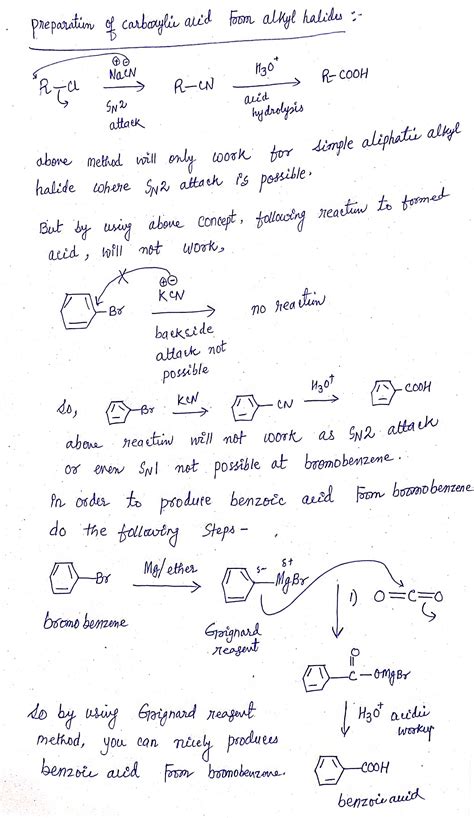 Preparation of carboxylic acid from alkyl halides :-
⊕⊖
NaCN
H3O+
R-Cl
R-CN
R-COOH
SN2
attack
acid
hydrolysis
above method will only work for simple aliphatic alkyl
halide where SN2 attack is possible.
But by using above concept, following reaction to formed
acid, will not work,
X
⊕⊖
KCN
Br
no reaction
backside
attack not
possible
So,
Br
KCN
CN
H3O+
COOH
above reaction will not work as SN2 attack
or even SN1 not possible at bromobenzene.
In order to produce benzoic acid from bromobenzene
do the following steps -
Br
Mg/ether
δ-
δ+
MgBr
1)
O=C=O
bromobenzene
Grignard
reagent
O
C-OMgBr
So by using Grignard reagent
method, you can nicely produces
benzoic acid from bromobenzene.
H3O+ acidic
workup
COOH
benzoic acid